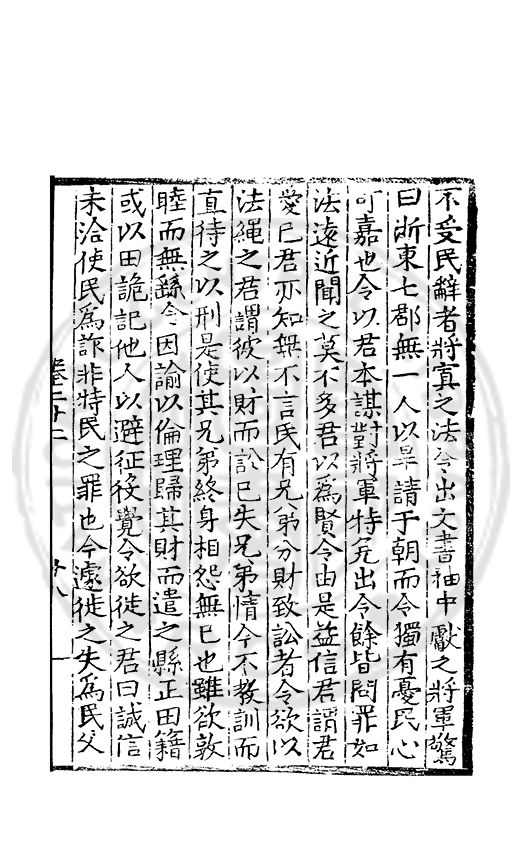 不受民辭者將寘之法令出文書袖中獻之將軍驚
曰浙東七郡無一人以旱請于朝而令獨有憂民心
可嘉也令以君本謀對將軍特免出令餘皆閱罪如
法遠近聞之莫不多君以爲賢令由是益信君謂君
愛已君亦知無不言民有兄弟分財致訟者令欲以
法繩之君謂彼以財而訟已失兄弟情今不教訓而
直待之以刑是使其兄弟終身相怨無已也雖欲敦
睦而無繇令因諭以倫理歸其財而遣之縣正田籍
或以田詭記他人以避征役覺令欲徙之君曰誠信
未洽使民爲詐非特民之罪也今遽徙之失爲民父
卷二十二
十八